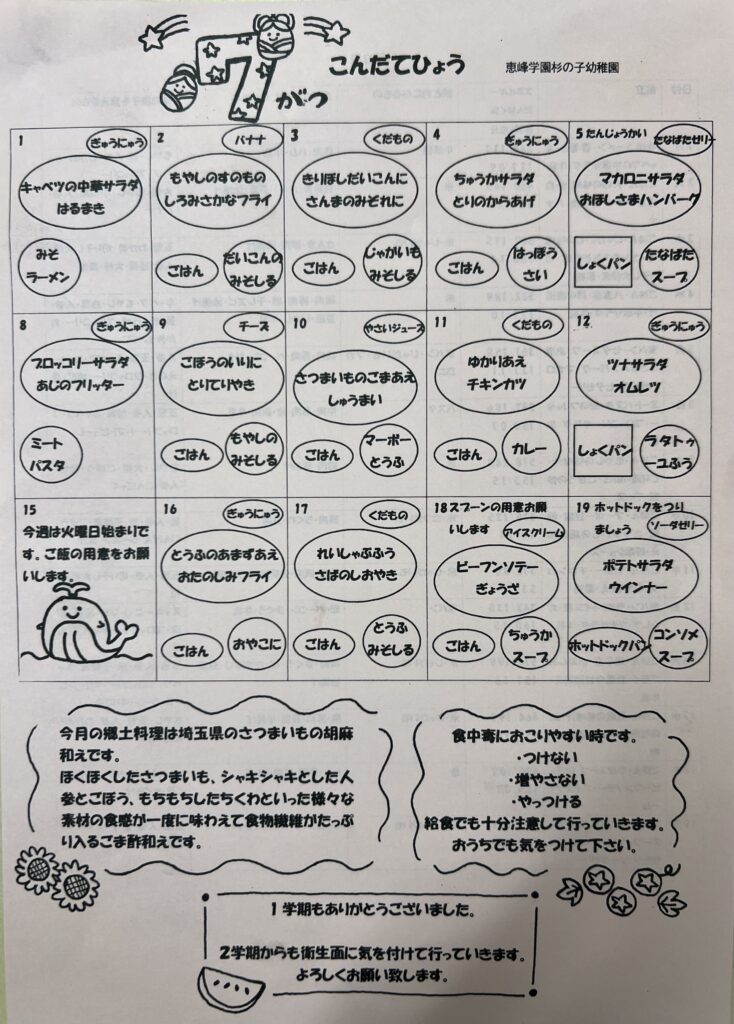 7がつ
こんだてひょう
恵峰学園杉の子幼稚園
1
ぎゅうにゅう
キャベツの中華サラダ
はるまき
みそ
ラーメン
2
バナナ
もやしのすのもの
しろみさかなフライ
ごはん
だいこんの
みそしる
3
くだもの
きりぼしだいこんに
さんまのみぞれに
ごはん
じゃがいも
みそしる
4
ぎゅうにゅう
ちゅうかサラダ
とりのからあげ
ごはん
はっぽう
さい
5 たんじょうかい
たなばたゼリー
マカロニサラダ
おほしさまハンバーグ
しょくパン
たなばた
スープ
8
ぎゅうにゅう
ブロッコリーサラダ
あじのフリッター
ミート
パスタ
9
チーズ
ごぼうのいりに
とりてりやき
ごはん
もやしの
みそしる
10
やさいジュース
さつまいものごまあえ
しゅうまい
ごはん
マーボー
とうふ
11
くだもの
ゆかりあえ
チキンカツ
ごはん
カレー
12
ぎゅうにゅう
ツナサラダ
オムレツ
しょくパン
ラタトゥ
ーユふう
15
今週は火曜日始まりで
す。ご飯の用意をお願
いします。
16
ぎゅうにゅう
とうふのあまずあえ
おたのしみフライ
ごはん
おやこに
17
くだもの
れいしゃぶふう
さばのしおやき
ごはん
とうふ
みそしる
18 スプーンの用意お願
いします
アイスクリーム
ビーフンソテー
ぎょうざ
ごはん
ちゅうか
スープ
19 ホットドックをつり
ましょう
ソーダゼリー
ポテトサラダ
ウインナー
ホットドックパン
コンソメ
スープ
今月の郷土料理は埼玉県のさつまいもの胡麻
和えです。
ほくほくしたさつまいも、シャキシャキとした人
参とごぼう、もちもちしたちくわといった様々な
素材の食感が一度に味わえて食物繊維がたっぷ
り入るごま酢和えです。
食中毒におこりやすい時です。
・つけない
・増やさない
・やっつける
給食でも十分注意して行っていきます。
おうちでも気をつけて下さい。
1学期もありがとうございました。
2学期からも衛生面に気を付けて行っていきます。
よろしくお願い致します。